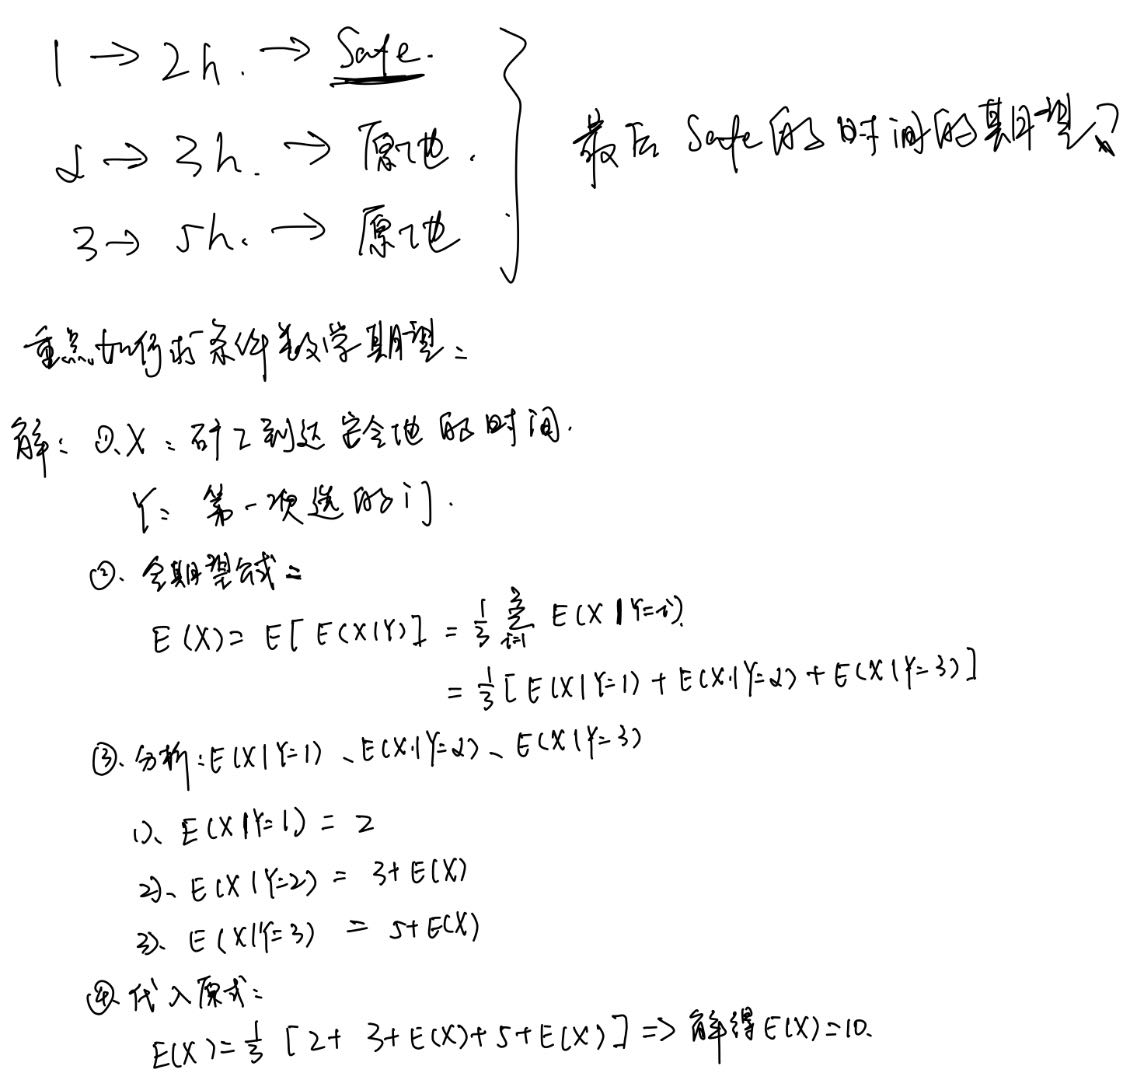 1 → 2h. → Safe.
2 → 3h. → 原地.
3 → 5h. → 原地
最后 Safe 的时间的期望?
重点: 如何求条件数学期望:
解: ①、X: 矿工到达安全地的时间.
Y: 第一次选的门.
②、全期望公式:
E(X) = E[E(X|Y)] = 1/3 ∑_{i=1}^{3} E(X|Y=i).
= 1/3 [E(X|Y=1) + E(X|Y=2) + E(X|Y=3)]
③、分析: E(X|Y=1)、E(X|Y=2)、E(X|Y=3)
1)、E(X|Y=1) = 2
2)、E(X|Y=2) = 3+E(X)
3)、E(X|Y=3) = 5+E(X)
④、代入原式:
E(X) = 1/3 [2+3+E(X)+5+E(X)] => 解得E(X)=10.